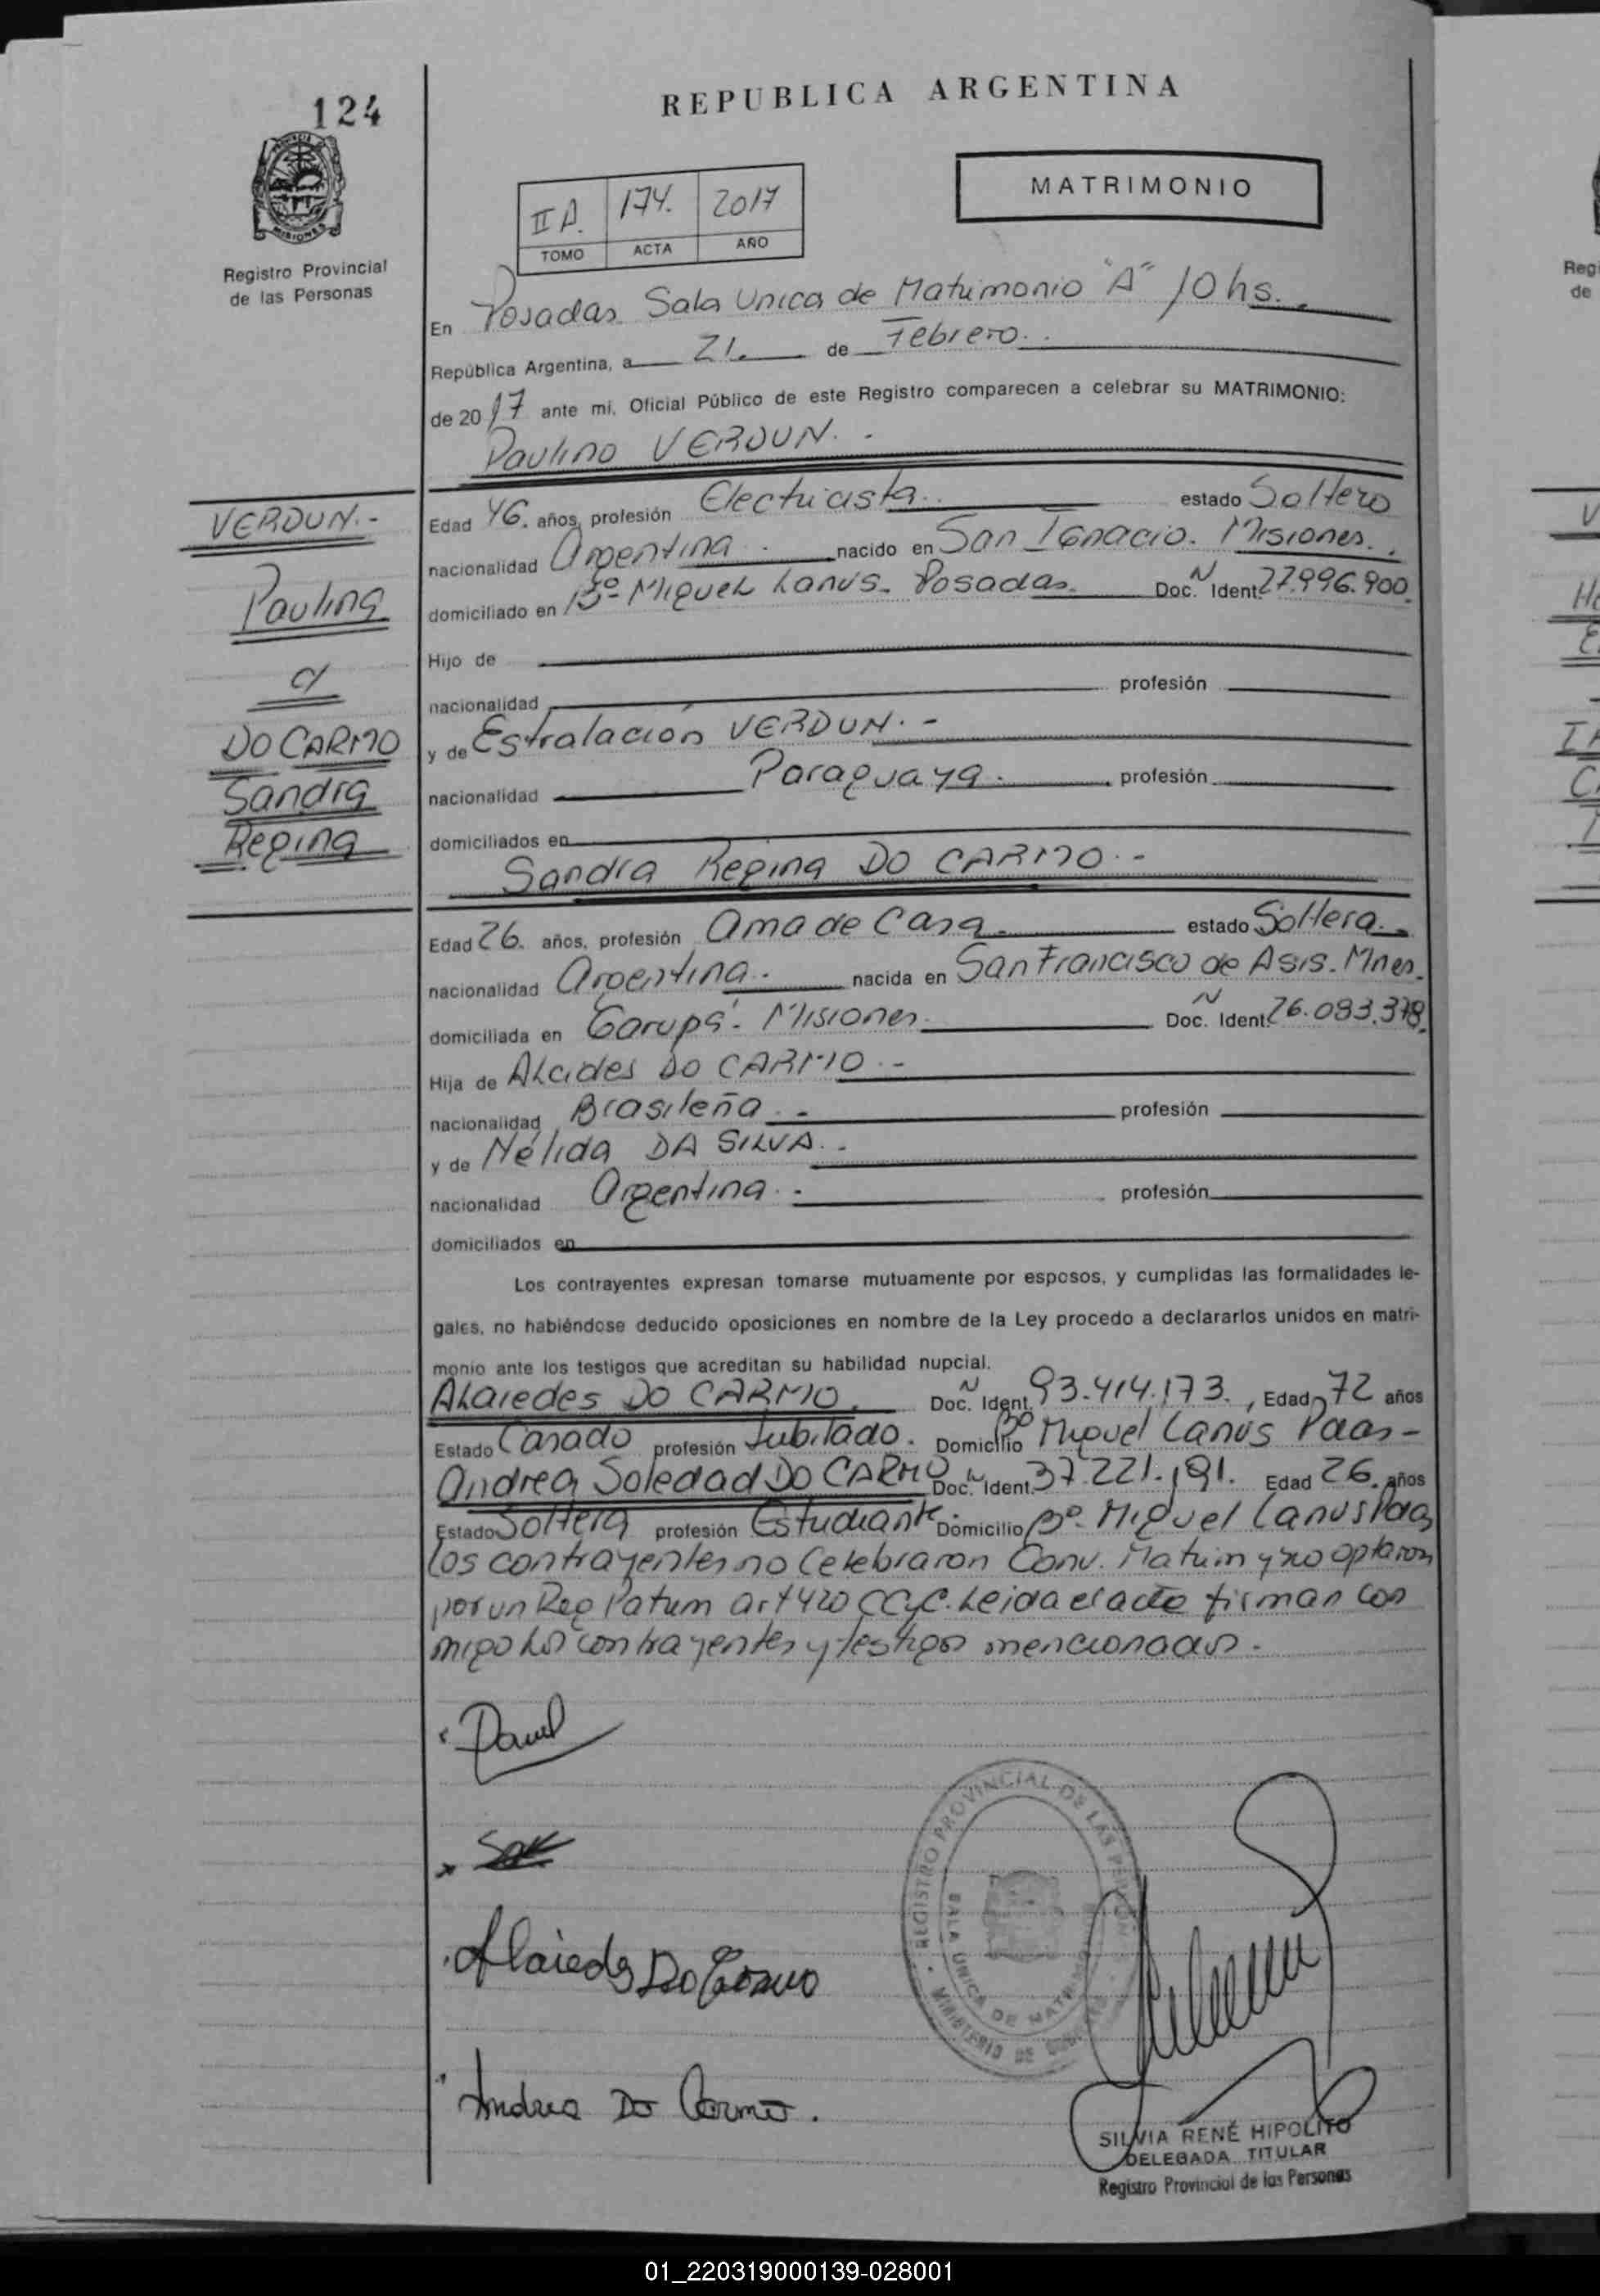 124
REPUBLICA ARGENTINA
MATRIMONIO
II A. 174. 2017
TOMO ACTA AÑO
MISIONES
Registro Provincial
de las Personas
En Posadas Sala Unica de Matrimonio "A" 10 hs.
República Argentina, a 21. de Febrero.
de 2017 ante mi, Oficial Público de este Registro comparecen a celebrar su MATRIMONIO:
Paulino VERDUN. -
VERDUN.-
Paulino
c/
DO CARMO
Sandra
Regina
Edad 46. años, profesión Electricista. estado Soltero
nacionalidad Argentina. nacido en San Ignacio. Misiones.
domiciliado en Bº Miguel Lanus. Posadas. Doc. N Ident. 27.996.900.
Hijo de
nacionalidad profesión
y de Estralación VERDUN. -
nacionalidad Paraguaya. profesión
domiciliados en
Sandra Regina DO CARMO. -
Edad 26. años, profesión Ama de Casa. estado Soltera.
nacionalidad Argentina. nacida en San Francisco de Asis. Mnes.
domiciliada en Garupá. Misiones Doc. N Ident. 26.083.378.
Hija de Alcides DO CARMO. -
nacionalidad Brasileña. - profesión
y de Nélida DA SILVA. -
nacionalidad Argentina. - profesión
domiciliados en
Los contrayentes expresan tomarse mutuamente por esposos, y cumplidas las formalidades le-
gales, no habiéndose deducido oposiciones en nombre de la Ley procedo a declararlos unidos en matri-
monio ante los testigos que acreditan su habilidad nupcial.
Alaiedes DO CARMO. Doc. N Ident. 93.414.173. , Edad 72 años
Estado Casado profesión Jubilado. Domicilio Bº Miguel Lanus Pdas-
Andrea Soledad DO CARMO Doc. N Ident. 37.221.191. Edad 26. años
Estado Soltera profesión Estudiante. Domicilio Bº. Miguel Lanus Pdas
Los contrayentes no Celebraron Conv. Matrim y no optaron
por un Reg Patrim art 420 CCyC. Leida el acta firman con
migo los contrayentes y testigos mencionados.
Alaiedes Do Carmo
Andrea Do Carmo.
REGISTRO PROVINCIAL DE LAS
SALA UNICA DE
MINISTERIO DE
SILVIA RENÉ HIPOLITO
DELEGADA TITULAR
Registro Provincial de las Personas
Regi
de
V
01_220319000139-028001